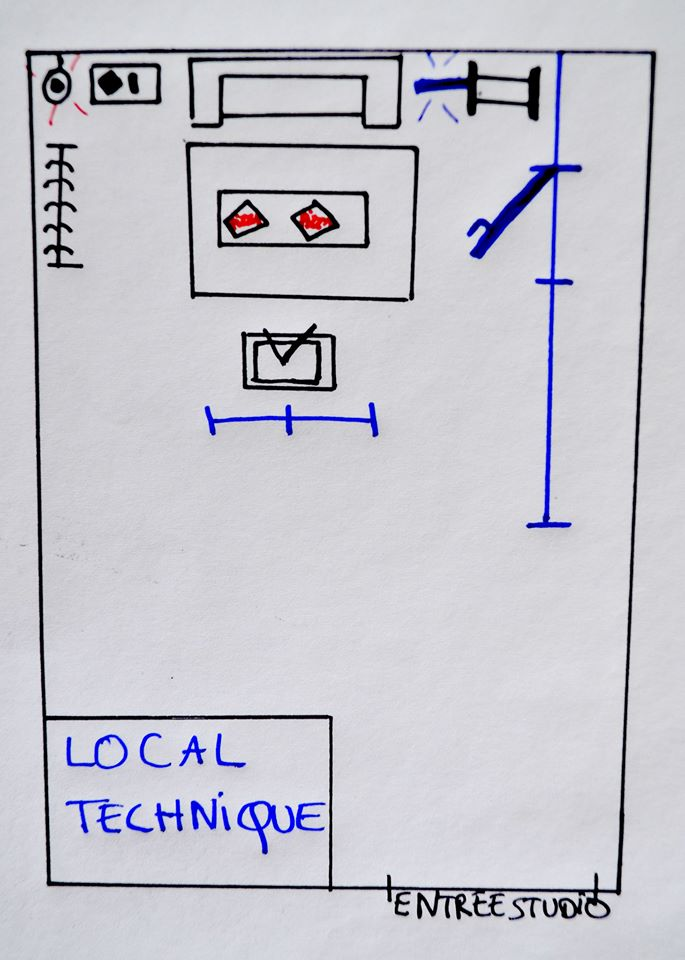 LOCAL
TECHNIQUE
ENTREE STUDIO